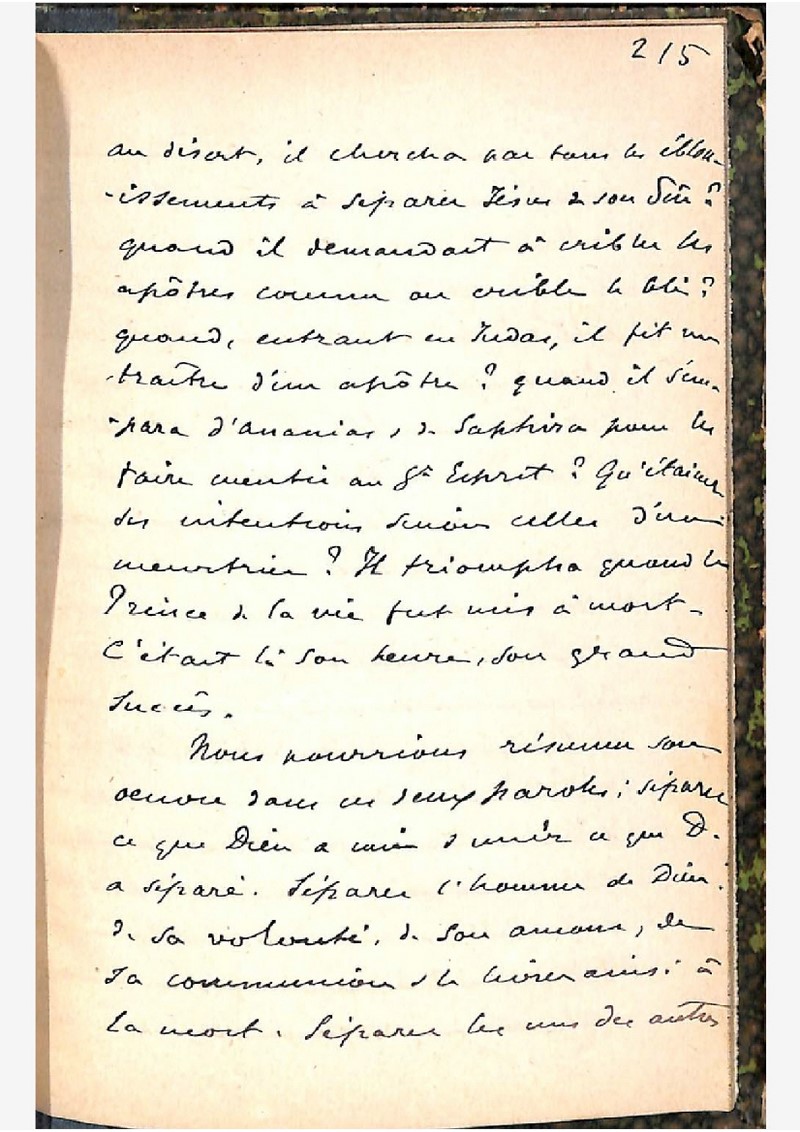 215
au désert, il chercha par tous les éblou-
-issements à séparer Jésus de son Dieu ?
quand il demandait à cribler les
apôtres comme on crible le blé ?
quand, entrant en Judas, il fit un
traître d'un apôtre ? quand il s'em-
-para d'Ananias & de Saphira pour les
faire mentir au St Esprit ? Qu'étaient
ses intentions sinon celles d'un
meurtrier ? Il triompha quand le
Prince de la vie fut mis à mort -
C'était là son heure, son grand
succès.
Nous pourrions résumer son
oeuvre dans ces deux paroles : séparer
ce que Dieu a uni & unir ce que D.
a séparé. Séparer l'homme de Dieu :
de sa volonté, de son amour, de
sa communion & le livrer ainsi à
la mort. Séparer les uns des autres